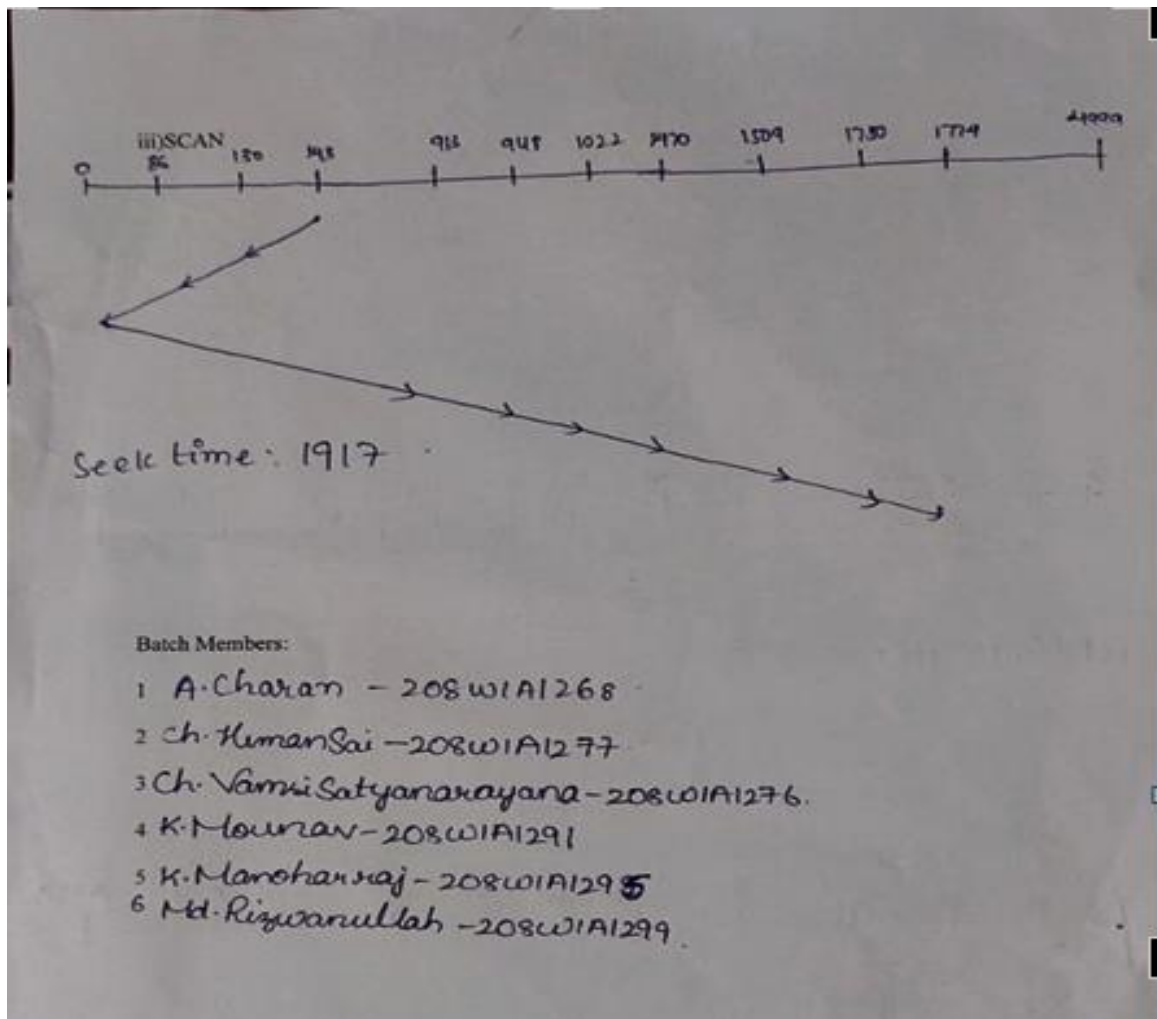 iii)SCAN
0 86 130 143 913 948 1022 1470 1509 1750 1774 4999
Seek time: 1917
Batch Members:
1 A.Charan - 208W1A1268
2 Ch.HemanSai - 208W1A1277
3 Ch. Vamsi Satyanarayana - 208W1A1276.
4 K.Mounav - 208W1A1291
5 K.Manoharraj - 208W1A1295
6 Md.Rizwanullah - 208W1A1299.